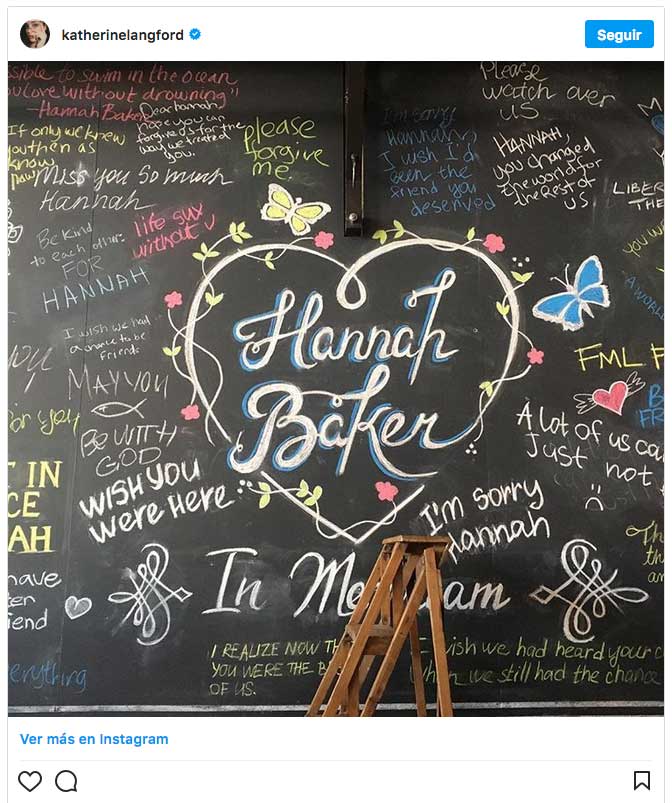 katherinelangford
Seguir
ssible to swim in the ocean
u love without drowning"
-Hannah Baker
If only we knew
you then as
know
now
Dear hannah,
hope you can
forgive us for the
way we treated
you.
please
forgive
me.
Miss you so much
Hannah
life sux
without u
Be kind
to each other.
FOR
HANNAH
I wish we had
a chance to be
friends
MAY YOU
BE WITH
GOD
WISH YOU
Were Here
for you
IN
CE
AH
have
friend
everything
I'm sorry
Hannah,
I wish I'd
been the
friend you
deserved
Please
watch over
us
HANNAH,
you changed
the world for
the rest of
us
LIBER
THE
A WORL
Hannah
Baker
FML F
B
FR
A lot of us ca
Just not
I'm sorry
Hannah
In Me am
I REALIZE NOW TH
YOU WERE THE B
OF US.
wish we had heard your c
when we still had the chance
Ver más en Instagram